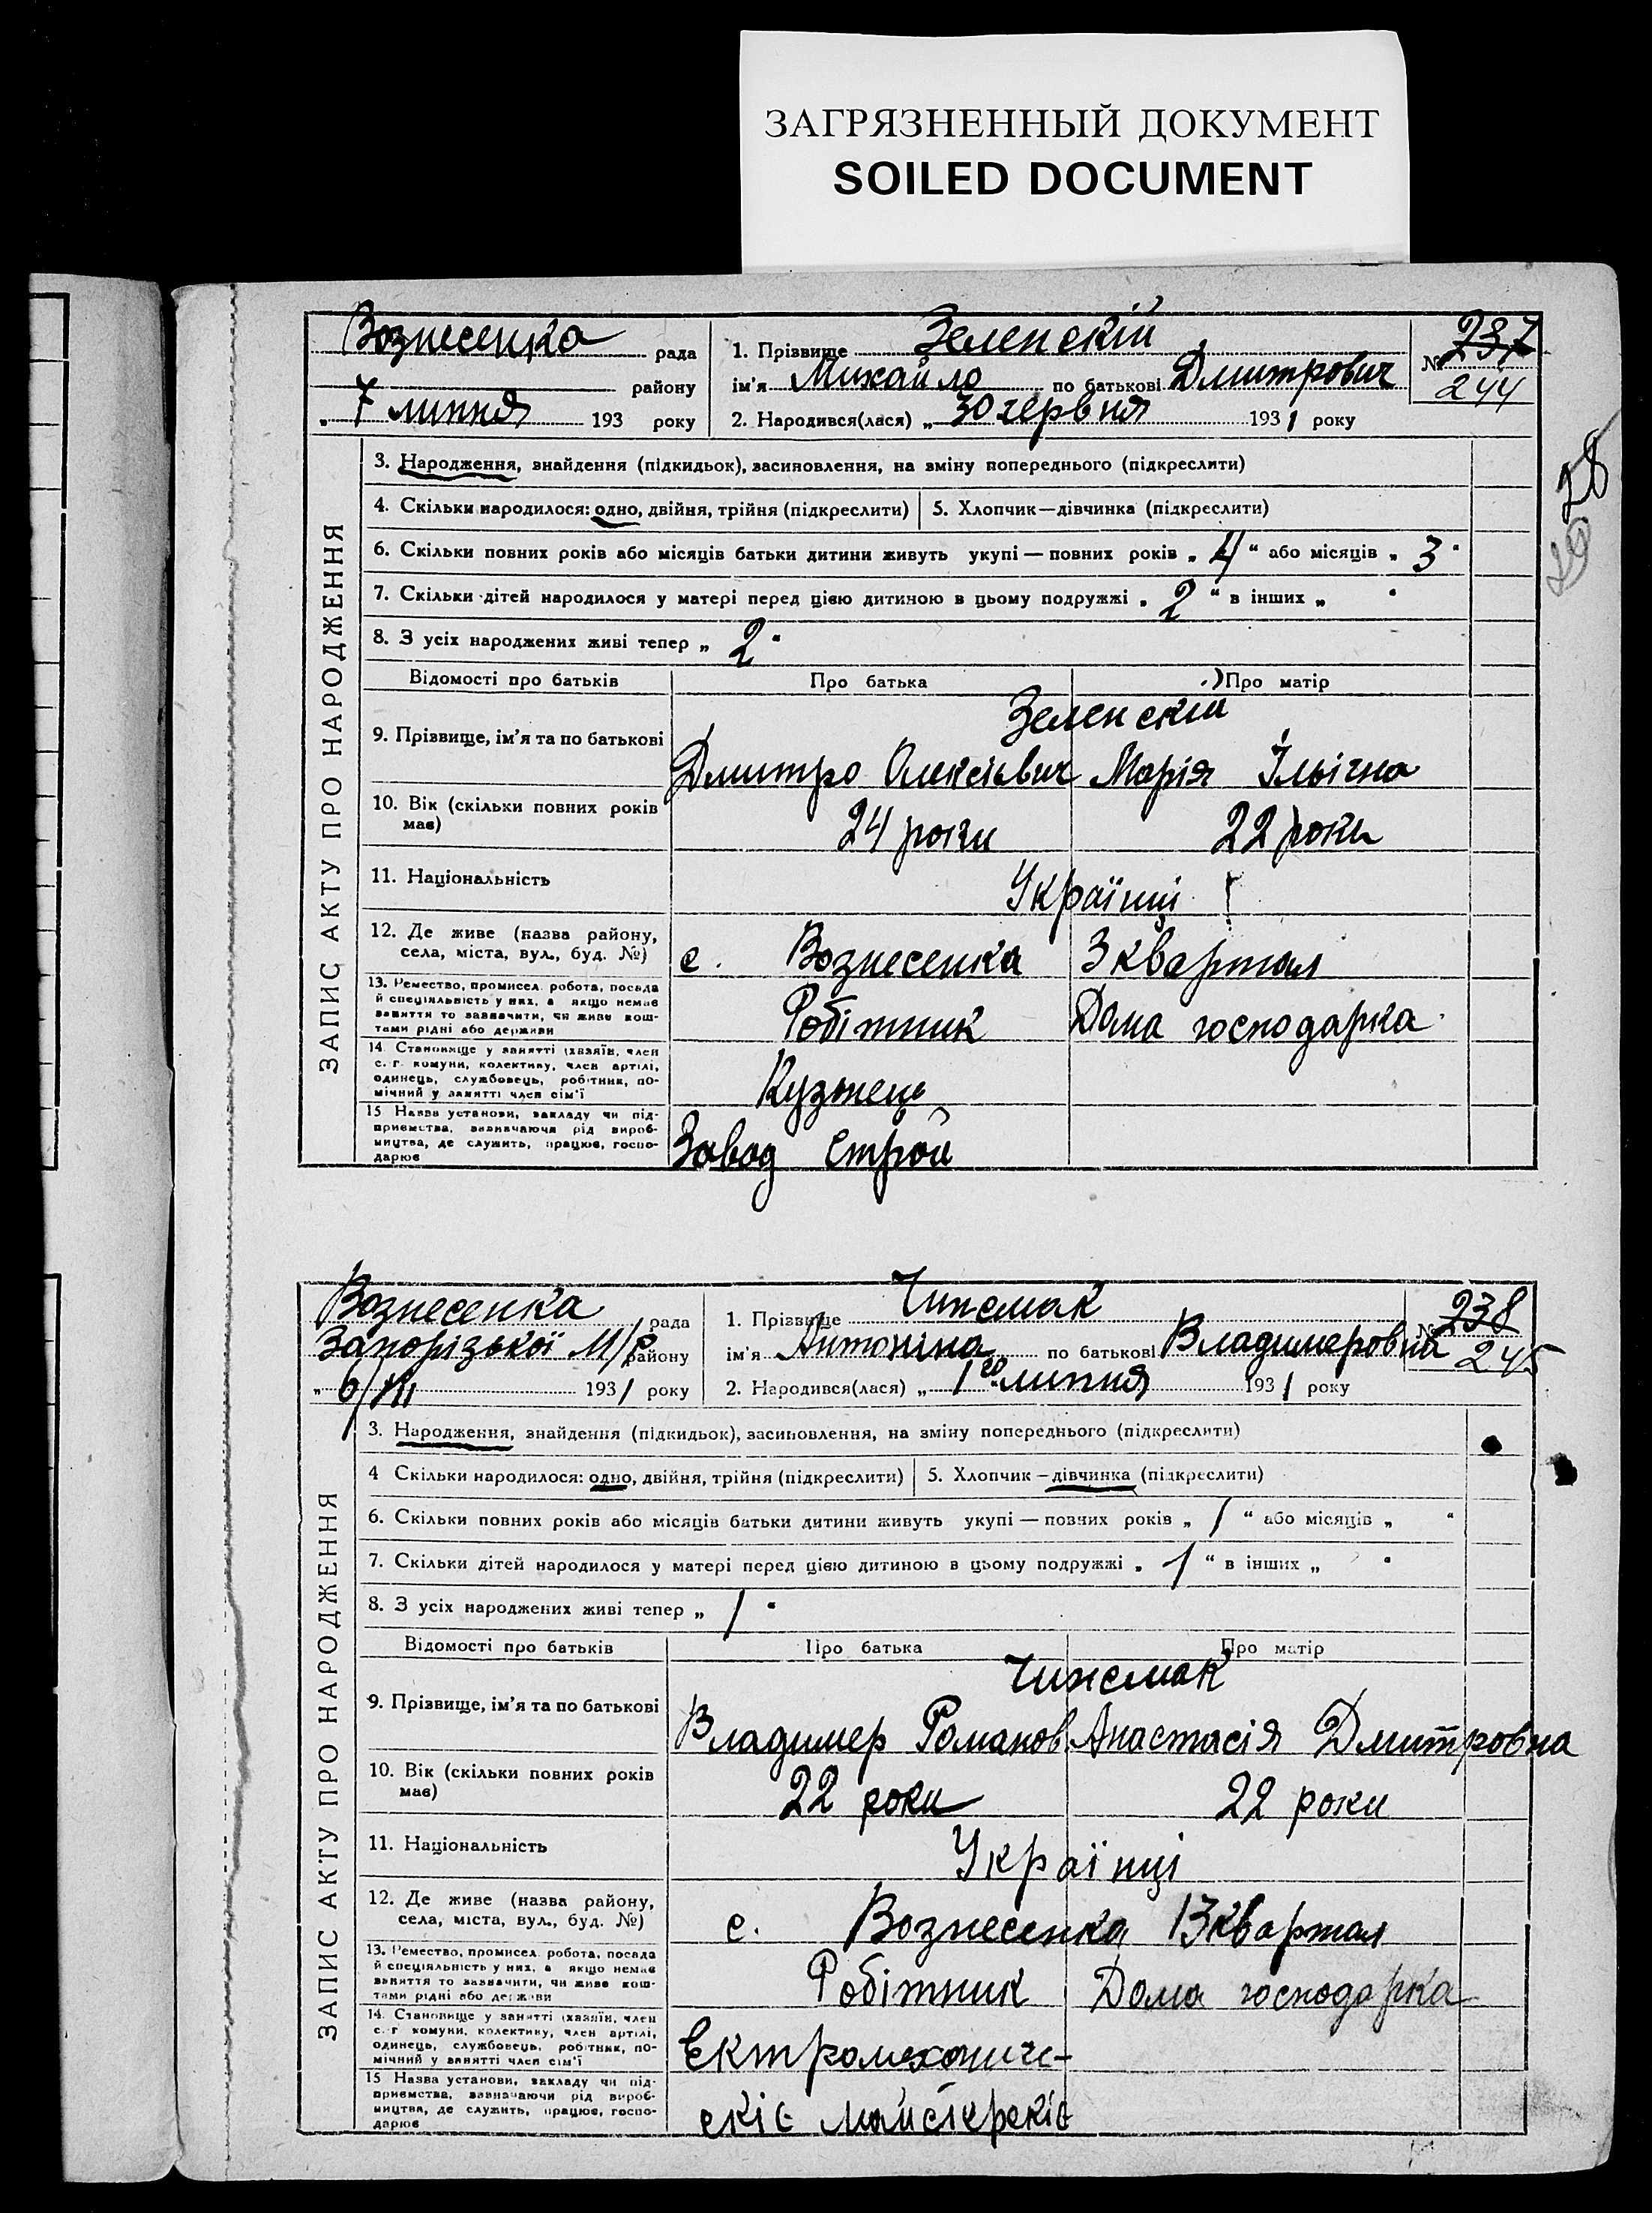 ЗАГРЯЗНЕННЫЙ ДОКУМЕНТ
SOILED DOCUMENT
Вознесенка рада
району
„ 7 липня 193 року
1. Прізвище Зеленскій
ім'я Михайло по батькові Дмитрович
2. Народився(лася) „ 30 червня 1931 року
№ 237
244
28
29
ЗАПИС АКТУ ПРО НАРОДЖЕННЯ
3. Народження, знайдення (підкидьок), засиновлення, на зміну попереднього (підкреслити)
4. Скільки народилося: одно, двійня, трійня (підкреслити) 5. Хлопчик—дівчинка (підкреслити)
6. Скільки повних років або місяців батьки дитини живуть укупі — повних років „ 4 “ або місяців „ 3 "
7. Скільки дітей народилося у матері перед цією дитиною в цьому подружжі „ 2 “ в інших „ "
8. З усіх народжених живі тепер „ 2 "
Відомості про батьків Про батька Про матір
Зеленскій
9. Прізвище, ім'я та по батькові Дмитро Олексієвич Марія Ільічна
10. Вік (скільки повних років має) 24 роки 22 роки
11. Національність Українці
12. Де живе (назва району, села, міста, вул., буд. №) с. Вознесенка 3 квартал
13. Ремество, промисел, робота, посада й спеціяльність у них, а якщо немає заняття то зазначити, чи живе коштами рідні або держави Робітник Дома господарка
14. Становище у занятті (хазяїн, член с.-г. комуни, колективу, член артілі, одинець, службовець, робітник, помічний у занятті член сім'ї Кузнець
15 Назва установи, закладу чи підприємства, зазначаючи рід виробництва, де служить, працює, господарює Завод Строй
Вознесенка рада
Запорізької М/Р району
„ 6/VII 1931 року
1. Прізвище Чижмак
ім'я Антонина по батькові Владимеровна
2. Народився(лася) „ 1го липня 1931 року
№ 238
245
ЗАПИС АКТУ ПРО НАРОДЖЕННЯ
3. Народження, знайдення (підкидьок), засиновлення, на зміну попереднього (підкреслити)
4 Скільки народилося: одно, двійня, трійня (підкреслити) 5. Хлопчик—дівчинка (підкреслити)
6. Скільки повних років або місяців батьки дитини живуть укупі — повних років „ 1 “ або місяців „ “
7. Скільки дітей народилося у матері перед цією дитиною в цьому подружжі „ 1 “ в інших „ "
8. З усіх народжених живі тепер „ 1 "
Відомості про батьків Про батька Про матір
9. Прізвище, ім'я та по батькові Владимер Романов. Анастасія Дмитровна
10. Вік (скільки повних років має) 22 роки 22 роки
11. Національність Українці
12. Де живе (назва району, села, міста, вул., буд. №) с. Вознесенка 13 квартал
13. Ремество, промисел, робота, посада й спеціяльність у них, а якщо немає заняття то зазначити, чи живе коштами рідні або держави Робітник Дома господарка
14. Становище у занятті (хазяїн, член с.-г. комуни, колективу, член артілі, одинець, службовець, робітник, помічний у занятті член сім'ї
15 Назва установи, закладу чи підприємства, зазначаючи рід виробництва, де служить, працює, господарює